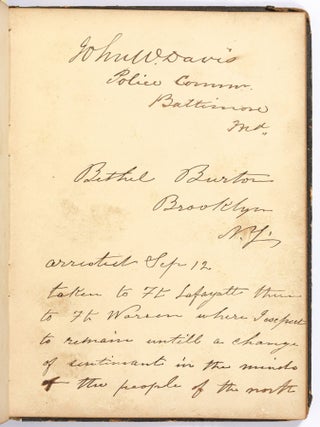 John W. Davis
Police Commr.
Baltimore
Md.
Bethel Burton
Brooklyn
N.Y.
arrested Sep 12
taken to Ft Lafayatt then
to Ft Warren where I exspect
to remain untill a change
of sentimants in the minds
of the people of the north